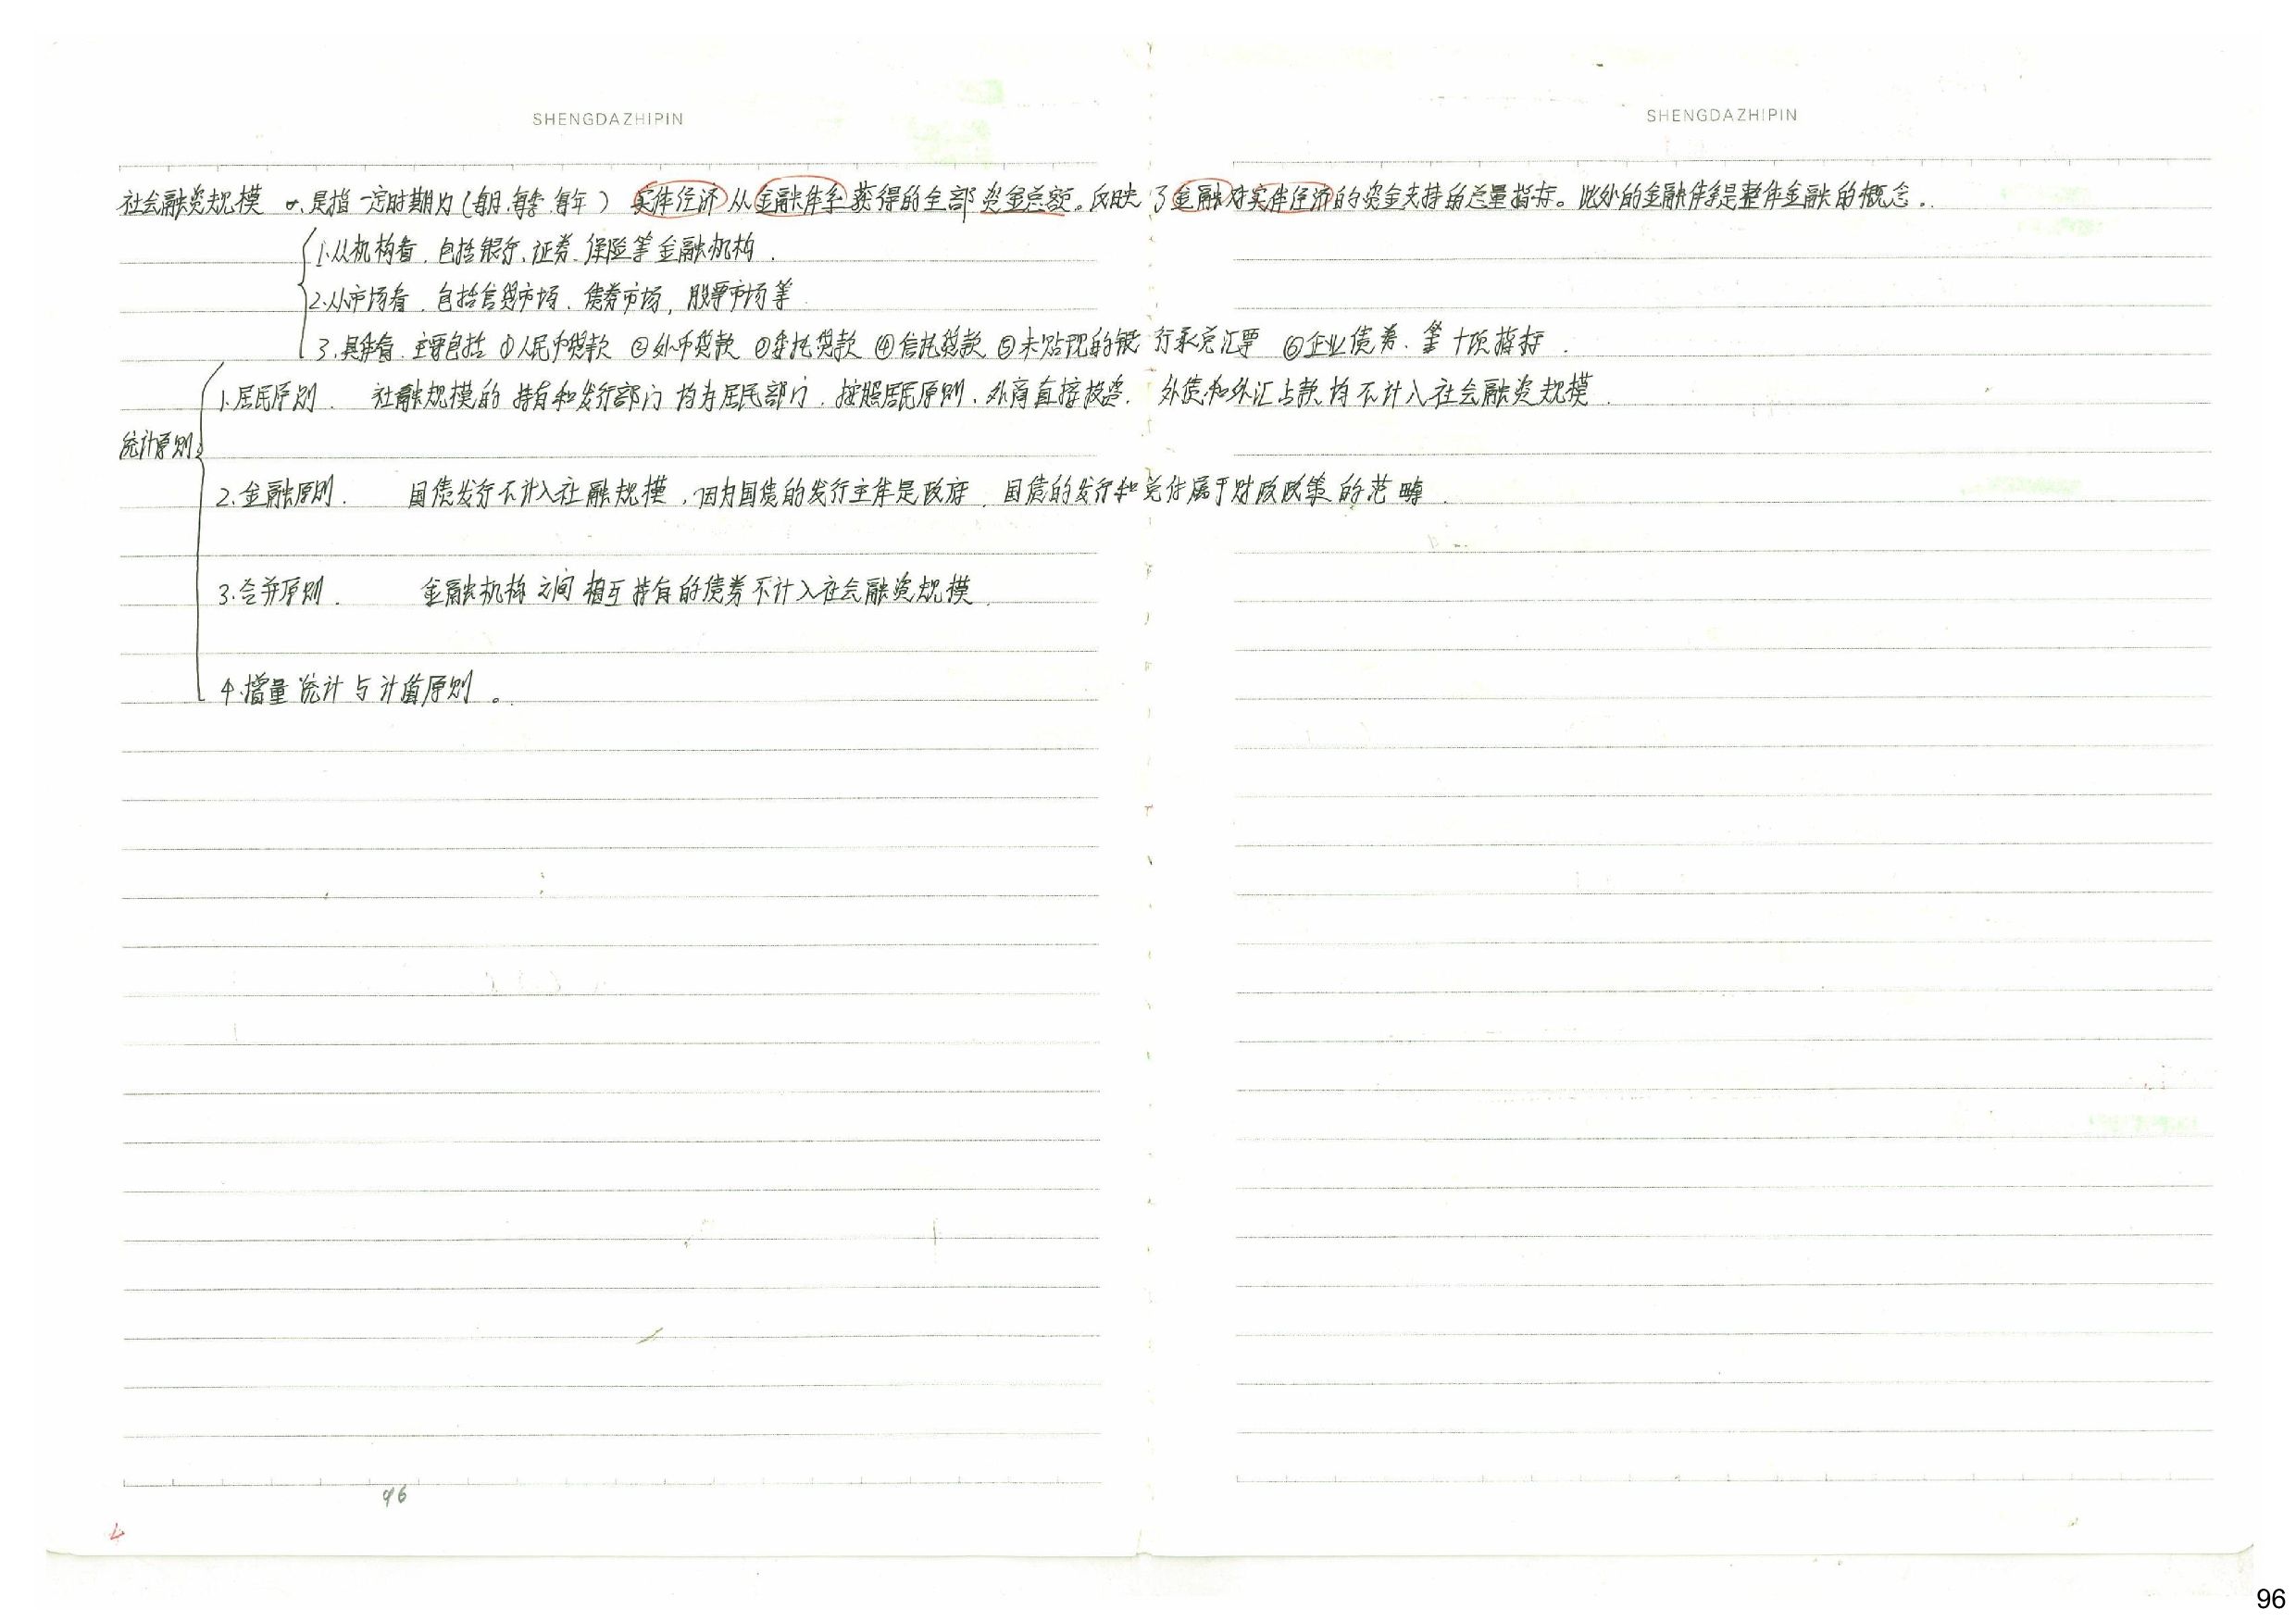 SHENGDAZHIPIN
SHENGDAZHIPIN
社会融资规模 0.是指一定时期内(每月.每季.每年) 实体经济从金融体系获得的全部资金总额。反映了金融对实体经济的资金支持的总量指标。此处的金融体系是整体金融的概念.
1.从机构看.包括银行、证券、保险等金融机构.
2.从市场看.包括信贷市场、债券市场,股票市场等
3.具体看.主要包括 ①人民币贷款 ②外币贷款 ③委托贷款 ④信托贷款 ⑤未贴现的银行承兑汇票 ⑥企业债券.等十项指标.
1.居民原则. 社融规模的持有和发行部门均为居民部门.按照居民原则、外商直接投资.外债和外汇占款均不计入社会融资规模.
统计原则
2.金融原则. 国债发行不计入社融规模,因为国债的发行主体是政府.国债的发行和兑付属于财政政策的范畴.
3.合并原则. 金融机构之间相互持有的债券不计入社会融资规模.
4.增量统计与计值原则。
96
96